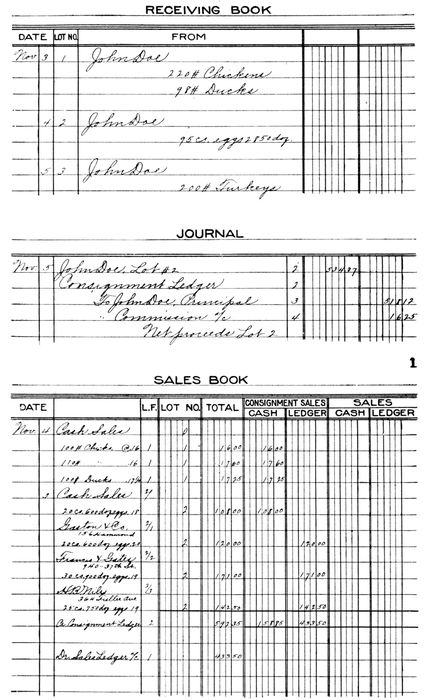 RECEIVING BOOK
DATE LOT NO. FROM
Nov 3 1 John Doe
220# Chickens
98# Ducks
4 2 John Doe
95 cs. eggs 2850 doz
5 3 John Doe
200# Turkeys
JOURNAL
Nov 5 John Doe, Lot #2 2 534 37
Consignment Ledger 2
To John Doe, Principal 3 518 12
" Commission a/c 4 16 25
Net proceeds Lot 2
1
SALES BOOK
DATE L.F. LOT NO. TOTAL CONSIGNMENT SALES SALES
CASH LEDGER CASH LEDGER
Nov 4 Cash Sales
100# Chicks @16 1 1 16 00 16 00
110# " 16 1 1 17 60 17 60
100# Ducks 1 1 17 25 17 25
Cash Sales
20 cs. 600 doz eggs. 18 2 108 00 108 00
Gaston & Co. 2/1
156 Hammond
20 cs. 600 doz eggs. 20 2 120 00 120 00
Francis & Gates 2/2
940-37th St.
30 cs. 900 doz eggs. 19 2 171 00 171 00
Miles 2/3
25 cs. 750 doz eggs. 19 2 142 50 142 50
Cr. Consignment Ledger 2 592 35 158 85 433 50
Dr. Sales Ledger a/c 1 433 50